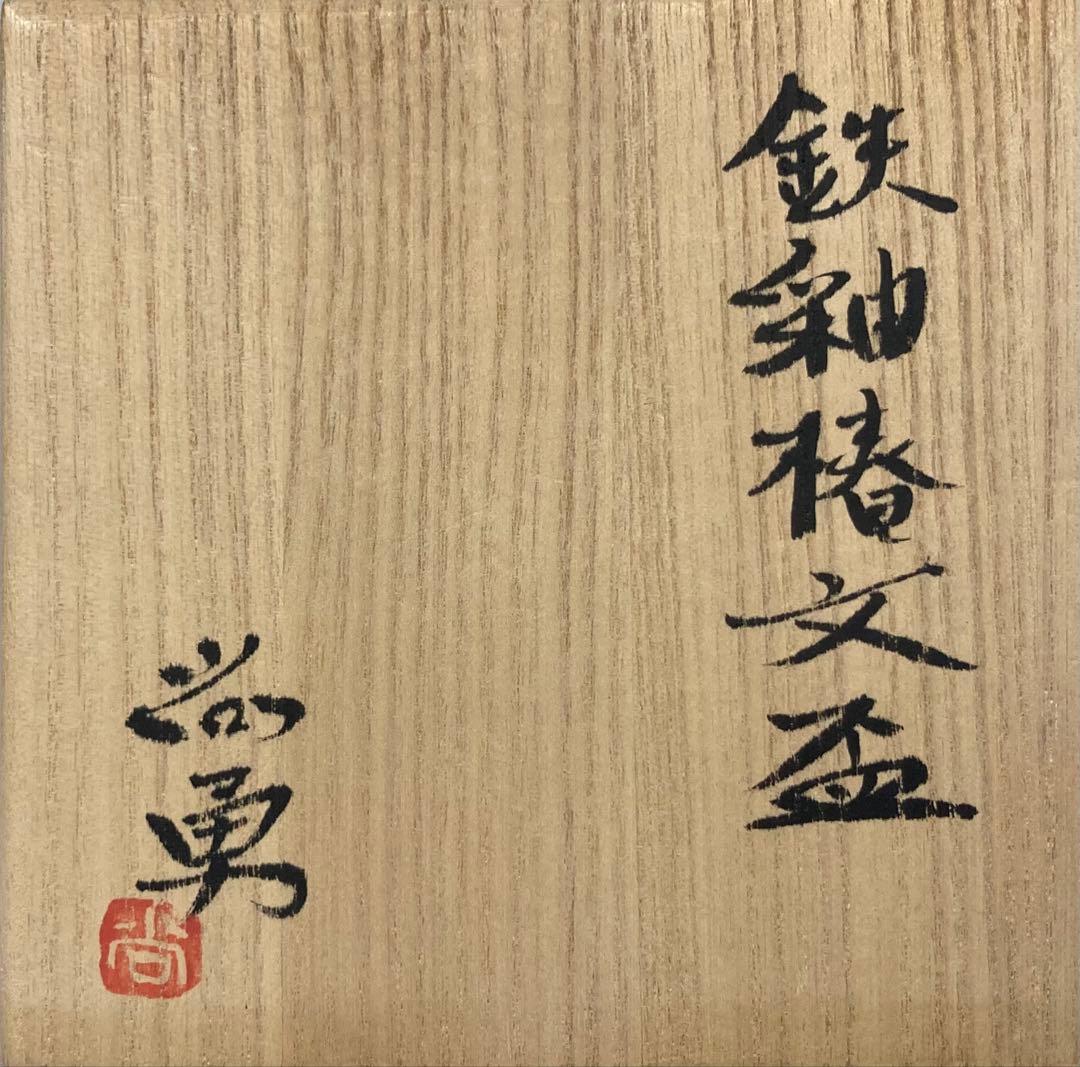 鉄釉椿文盃
尚勇
尚